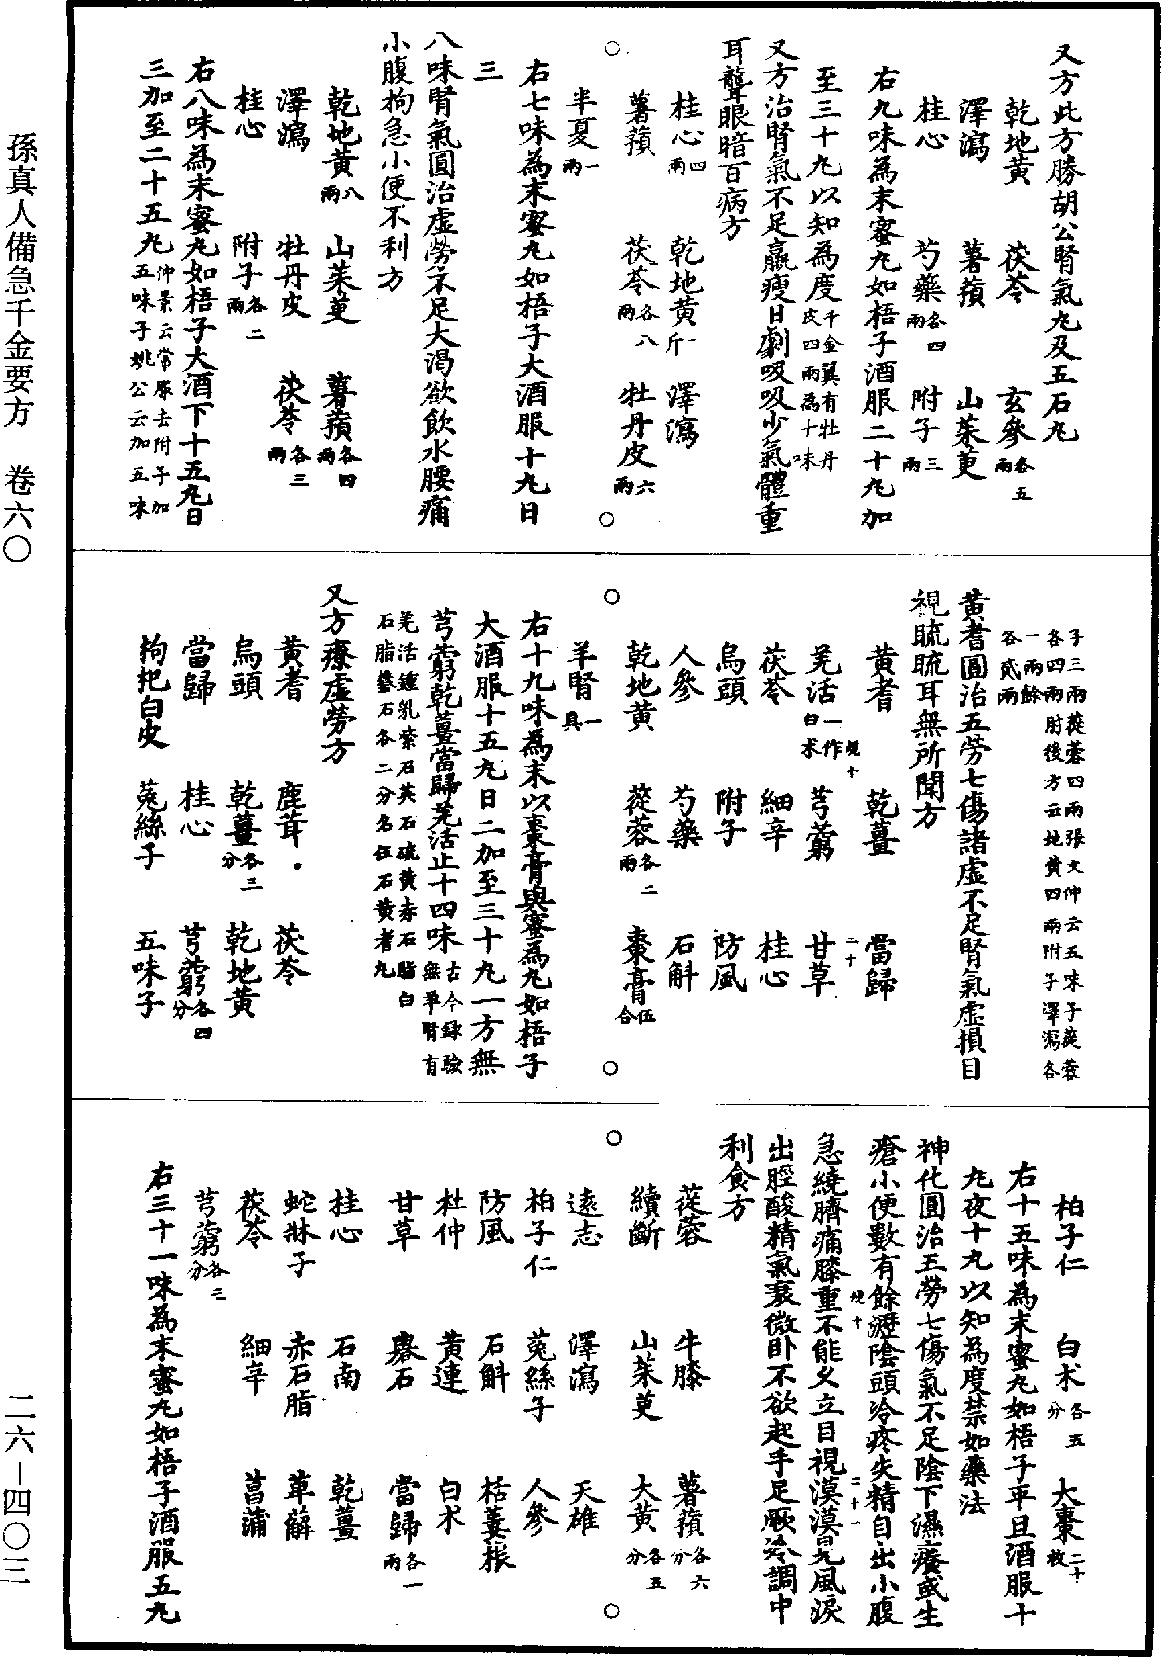 孫真人備急千金要方　卷六〇
二六－四〇三
又方此方勝胡公腎氣丸及五石丸
乾地黄　茯苓　玄參各五兩
澤瀉　薯蕷　山茱萸
桂心　芍藥各四兩　附子三兩
右九味為末蜜丸如梧子酒服二十丸加
至三十丸以知為度千金翼有牡丹皮四兩為十味
又方治腎氣不足羸瘦日劇吸吸少氣體重
耳聾眼暗百病方
桂心四兩　乾地黄一斤　澤瀉
薯蕷　茯苓各八兩　牡丹皮六兩
半夏一兩
右七味為末蜜丸如梧子大酒服十丸日
三
八味腎氣圓治虛勞不足大渴欲飲水腰痛
小腹拘急小便不利方
乾地黄八兩　山茱萸　薯蕷各四兩
澤瀉　牡丹皮　茯苓各三兩
桂心　附子各二兩
右八味為末蜜丸如梧子大酒下十五丸日
三加至二十五丸仲景云常服去附子加五味子姚公云加五味
子三兩蓯蓉四兩張文仲云五味子蓯蓉各四兩肘後方云地黄四兩附子澤瀉各一兩餘各貳兩
黄耆圓治五勞七傷諸虛不足腎氣虛損目
視䀮䀮耳無所聞方
黄耆　乾薑　當歸
羌活一作白术　芎藭　甘草
茯苓　細辛　桂心
烏頭　附子　防風
人參　芍藥　石斛
乾地黄　蓯蓉各二兩　棗膏伍合
羊腎一具
右十九味為末以棗膏與蜜為丸如梧子
大酒服十五丸日二加至三十丸一方無
芎藭乾薑當歸羌活止十四味古今録驗無羊腎有羌活鍾乳紫石英石硫黄赤石脂白石脂礜石各二分名伍石黄耆丸
又方療虛勞方
黄耆　鹿茸　茯苓
烏頭　乾薑各三分　乾地黄
當歸　桂心　芎藭各四分
枸杞白皮　菟絲子　五味子
柏子仁　白术各五分　大棗二十枚
右十五味為末蜜丸如梧子平旦酒服十
丸夜十丸以知為度禁如藥法
神化圓治五勞七傷氣不足陰下濕癢或生
瘡小便數有餘瀝陰頭冷疼失精自出小腹
急繞臍痛膝重不能久立目視漠漠見風淚
出脛酸精氣衰微卧不欲起手足厥冷調中
利食方
蓯蓉　牛膝　薯蕷各六分
續斷　山茱萸　大黄各五分
遠志　澤瀉　天雄
柏子仁　菟絲子　人參
防風　石斛　栝蔞根
杜仲　黄連　白术
甘草　礜石　當歸各一兩
桂心　石南　乾薑
蛇牀子　赤石脂　萆薢
茯苓　細辛　菖蒲
芎藭各三分
右三十一味為末蜜丸如梧子酒服五丸